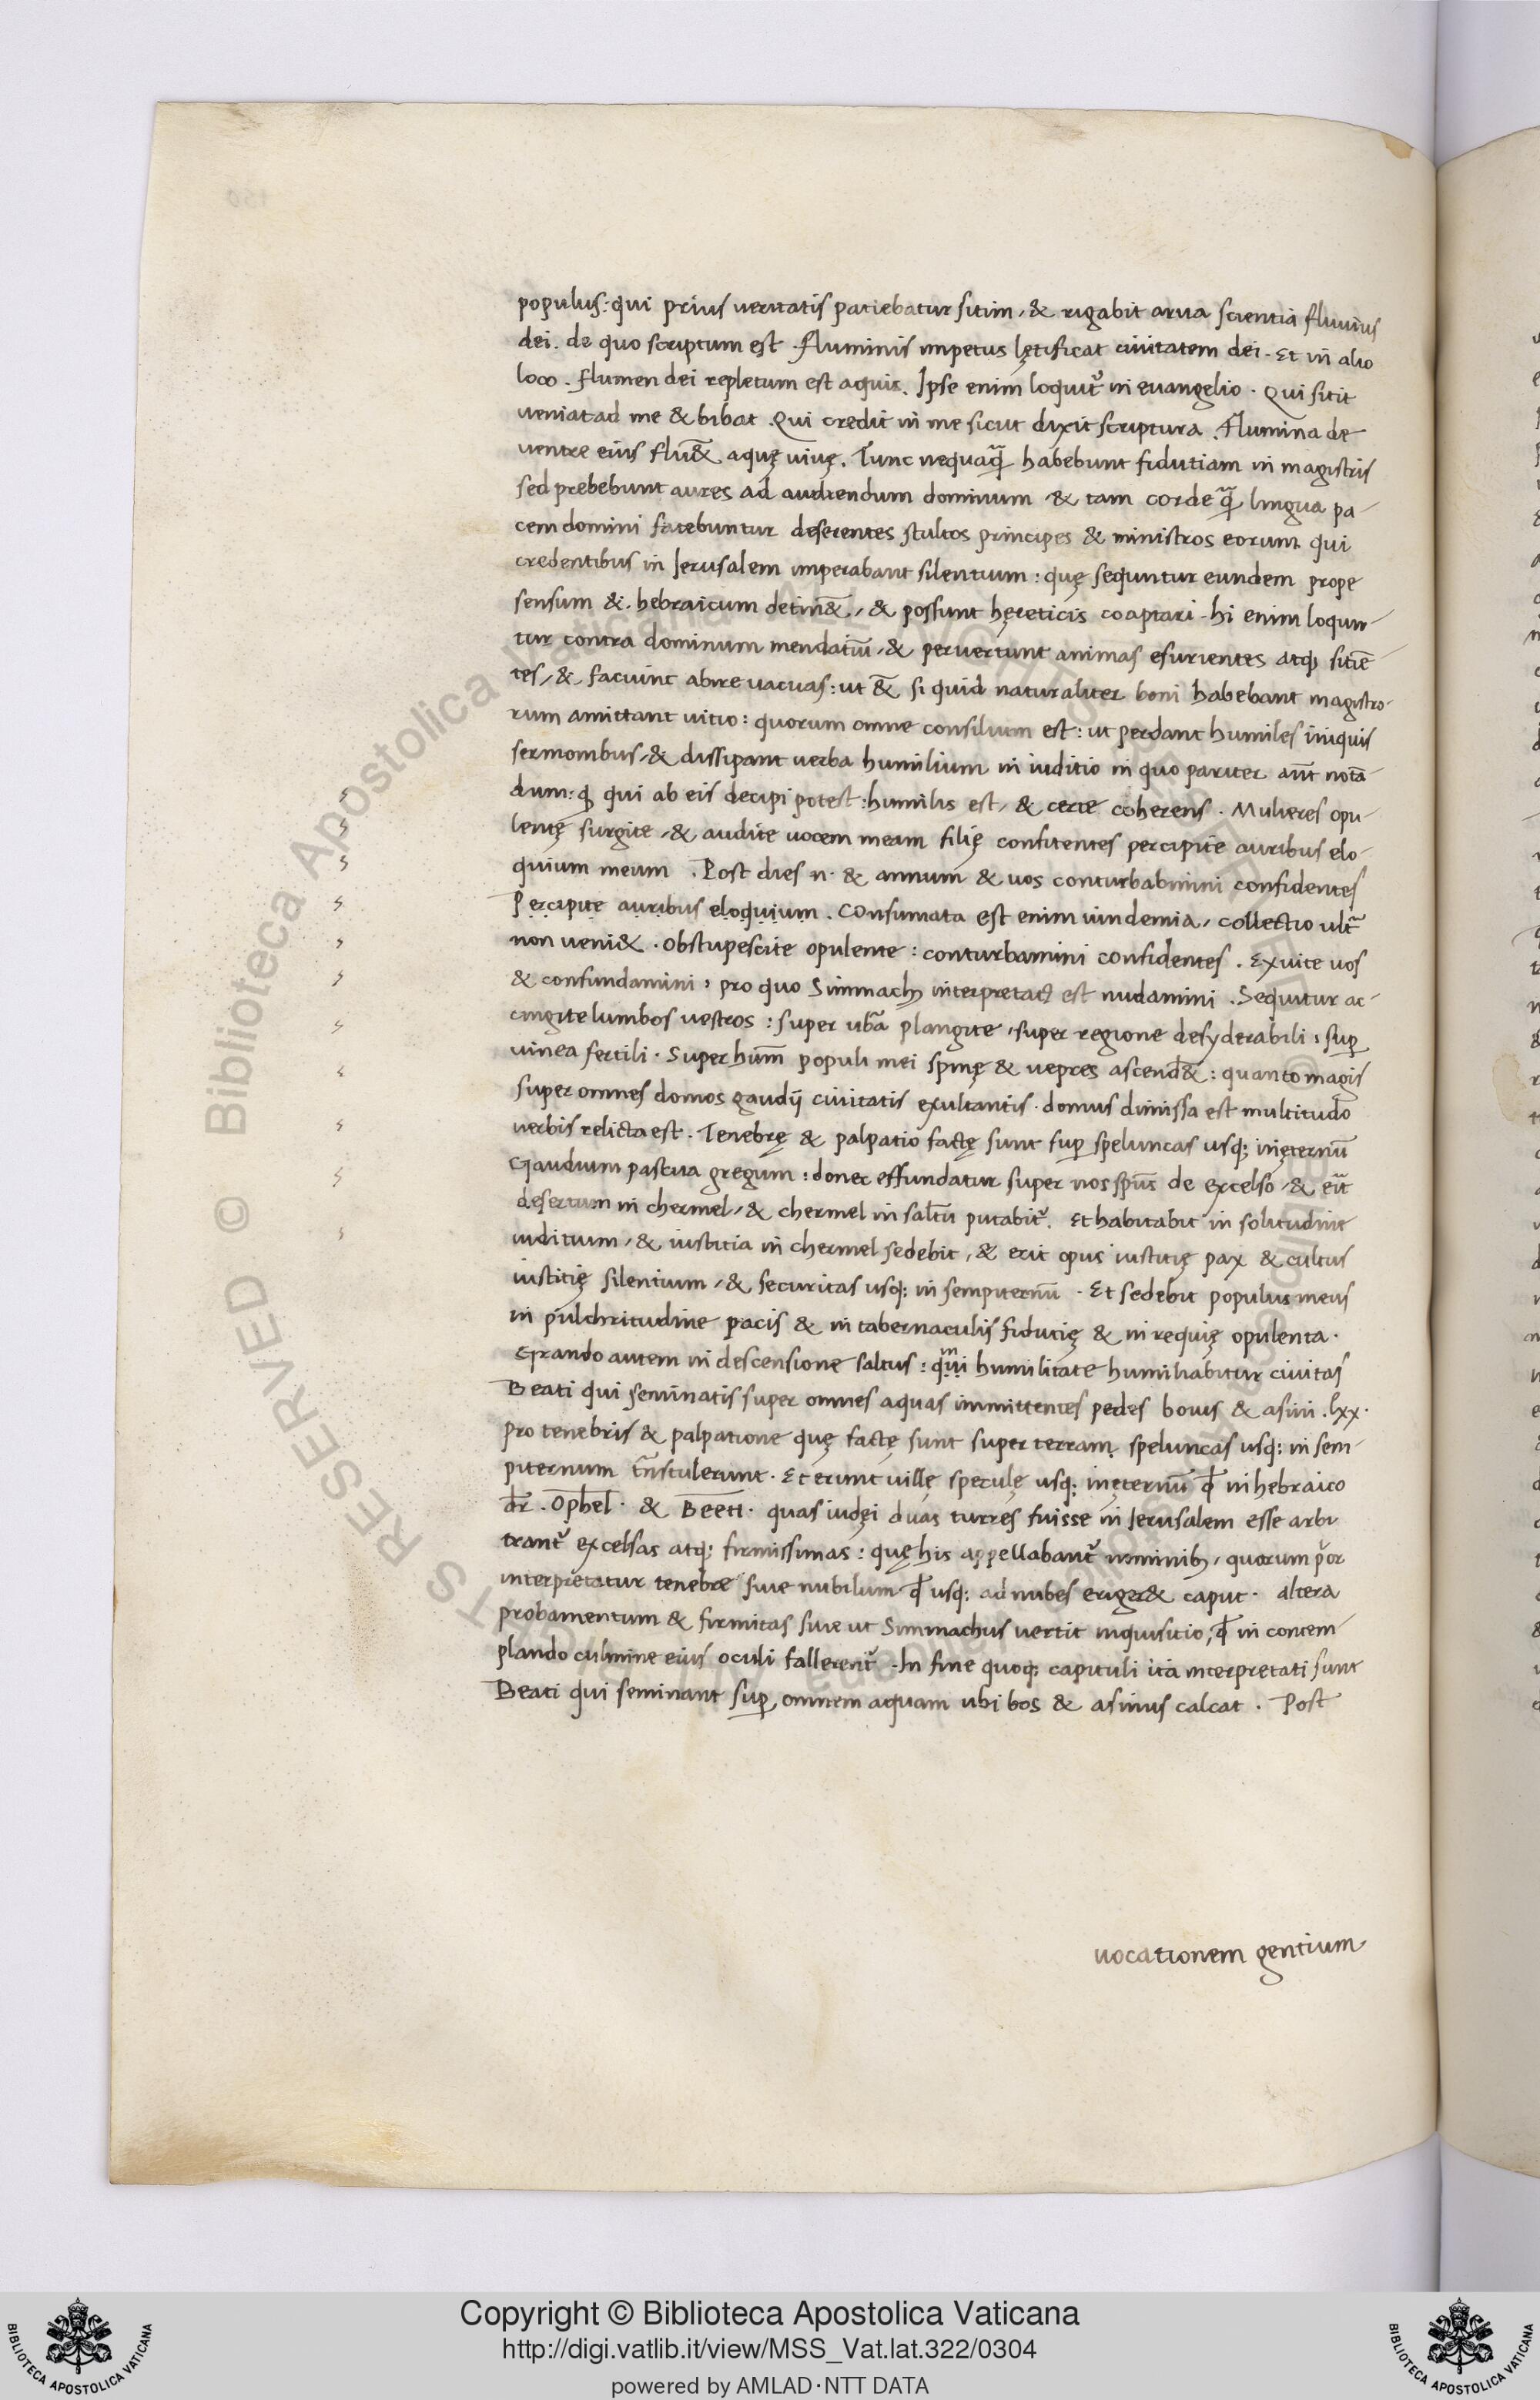 populus: qui prius ueritatis patiebatur sitim, & rigabit arua scientia fluuius
dei. de quo scriptum est. fluminis impetus lętificat ciuitatem dei. Et in alio
loco. flumen dei repletum est aquis. Ipse enim loquit᷑ in euangelio. Qui sitit
ueniat ad me & bibat. Qui credit in me sicut dixit scriptura. Flumina de
uentre eius flu&̄ aquę uiuę. Tunc nequaq̄ habebunt fidutiam in magistris
sed prebebunt aures ad audiendum dominum & tam corde q̄ lingua pa-
cem domini fatebuntur deserentes stultos principes & ministros eorum qui
credentibus in Jerusalem imperabant silentium: quę sequntur eundem prope
sensum &. hebraicum detin&̄, & possunt hęreticis coaptari. hi enim loqun-
tur contra dominum mendatiū, & peruertunt animas esurientes atq; sitiē-
tes, & faciunt abire uacuas: ut &̄ si quid naturaliter boni habebant magistro-
rum amittant uitio: quorum omne consilium est: ut perdant humiles iniquis
sermonibus, & dissipant uerba humilium in iuditio in quo pariter aūt notā-
dum: ꝙ qui ab eis decipi potest: humilis est, & certe coherens. Mulieres opu-
lentę surgite, & audite uocem meam filię confitentes percipite auribus elo-
quium meum. Post dies n. & annum & uos conturbabimini confidentes
Percipite auribus eloquium. Consumata est enim uindemia, collectio ult̄
non ueni&. Obstupescite opulente: conturbamini confidentes. Exuite uos
& confundamini, pro quo Simmachꝰ interpretatꝰ est nudamini. Sequitur ac-
cingite lumbos uestros: super ub̄a plangite, super regione desyderabili, suꝑ
uinea fertili. Super hum̄ populi mei spinę & uepres ascend&̄: quanto magis
super omnes domos gaudij ciuitatis exultantis. domus dimissa est multitudo
uerbis relicta est. Tenebrę & palpatio factę sunt suꝑ speluncas usq; inęternū
Gaudium pascua gregum: donec effundatur super nos sp̄us de excelso, & eīt
desertum in chermel, & chermel in saltū putabit᷑. Et habitabit in solitudine
iuditium, & iustitia in chermel sedebit, & erit opus iustitię pax & cultus
iustitię silentium, & securitas usq; in sempiternū. Et sedebit populus meus
in pulchritudine pacis & in tabernaculis fidutię & in requię opulenta.
Grando autem in descensione saltus: qm̄ui humilitate humiliabitur ciuitas
Beati qui seminatis super omnes aquas immittentes pedes bouis & asini. lxx.
pro tenebris & palpatione quę factę sunt super terram speluncas usq; in sem-
piternum tn̄stulerunt. Et erunt uillę speculę usq; inęternū qđ in hebraico
dr̄. Ophel. & Been. quas iudęi duas turres fuisse in Jerusalem esse arbi
trant᷑ excelsas atq; firmissimas: quę his appellabant᷑ nominibꝰ, quorum p̄or
interpretatur tenebre siue nubilum qđ usq; ad nubes eriger& caput. altera
probamentum & firmitas siue ut Simmachus uertit inquisitio, qđ in contem-
plando culmine eius oculi fallerent᷑. In fine quoq; capituli ita interpretati sunt
Beati qui seminant suꝑ omnem aquam ubi bos & asinus calcat. Post
uocationem gentium
Biblioteca Apostolica Vaticana
Copyright © Biblioteca Apostolica Vaticana
http://digi.vatlib.it/view/MSS_Vat.lat.322/0304
powered by AMLAD·NTT DATA
BIBLIOTECA APOSTOLICA VATICANA
BIBLIOTECA APOSTOLICA VATICANA